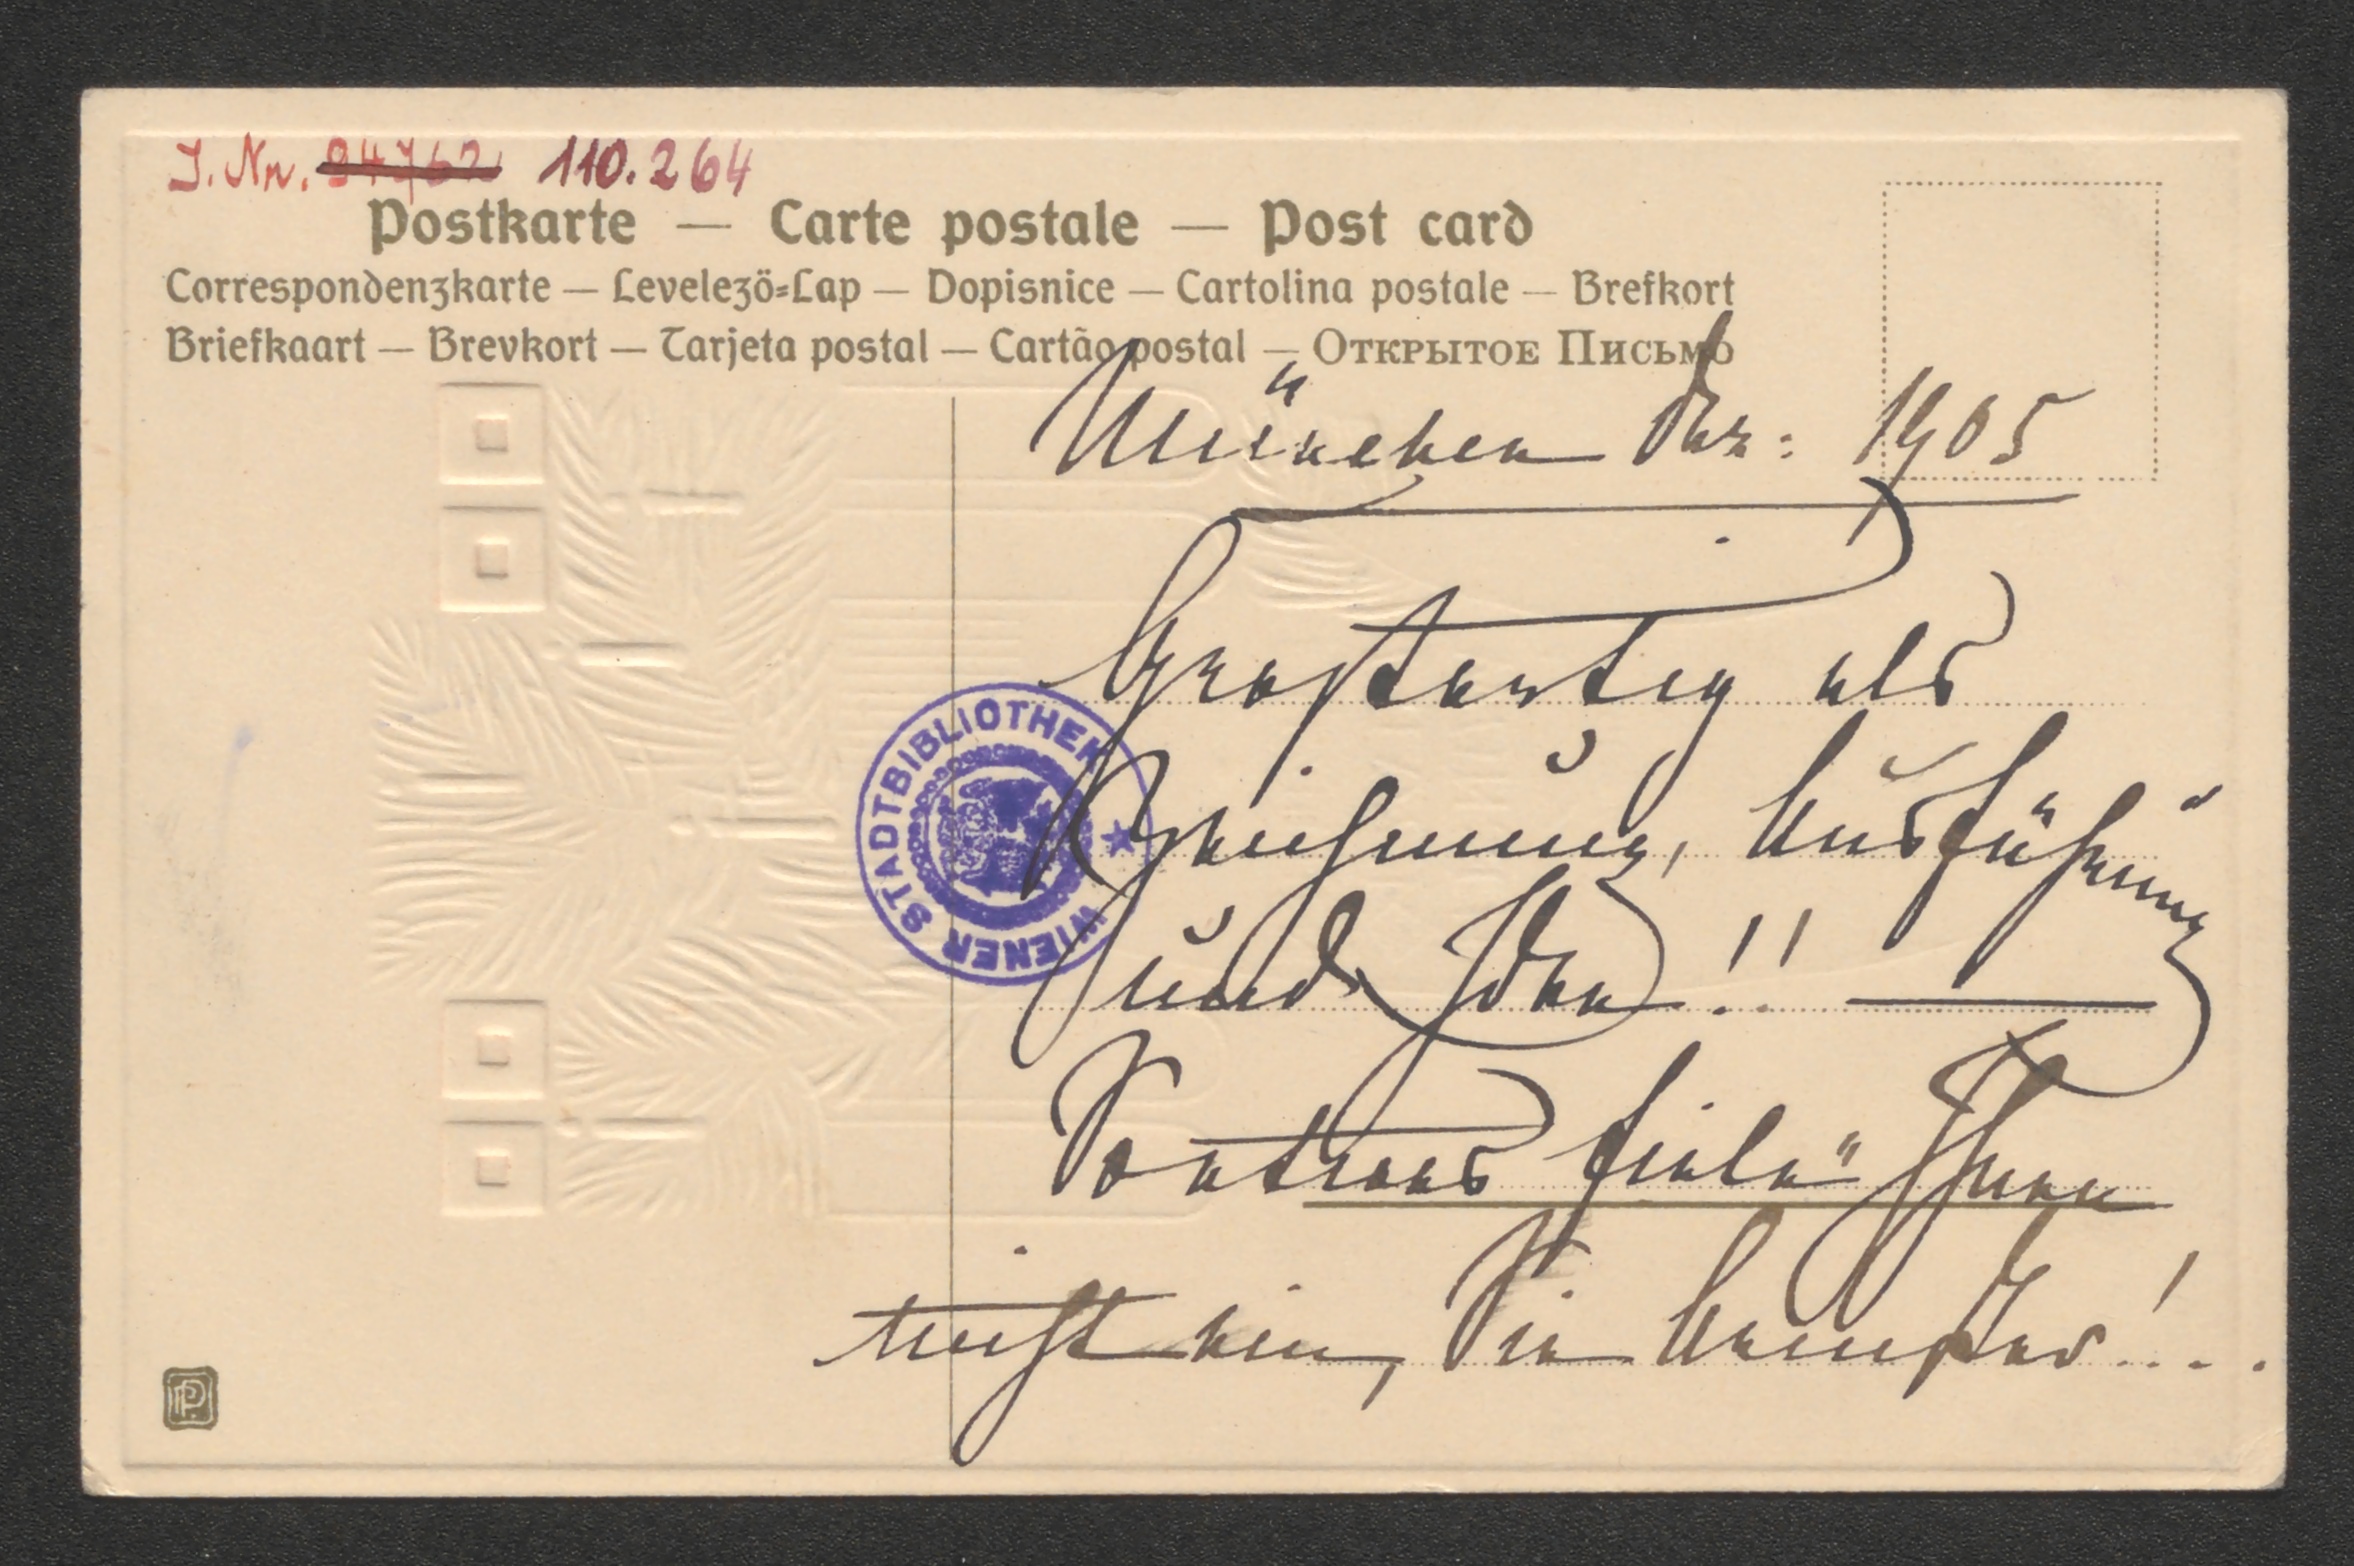 J. Nr. 24762 110.264
Postkarte — Carte postale — Post card
Correspondenzkarte — Levelező-Lap — Dopisnice — Cartolina postale — Brefkort
Briefkaart — Brevkort — Tarjeta postal — Cartão postal — Открытое Письмо
München Dez: 1905
Großartig als
Zeichnung, Ausführung
und Idee!! —
So etwas fiele Ihnen
nicht ein, Sie
WIENER STADTBIBLIOTHEK